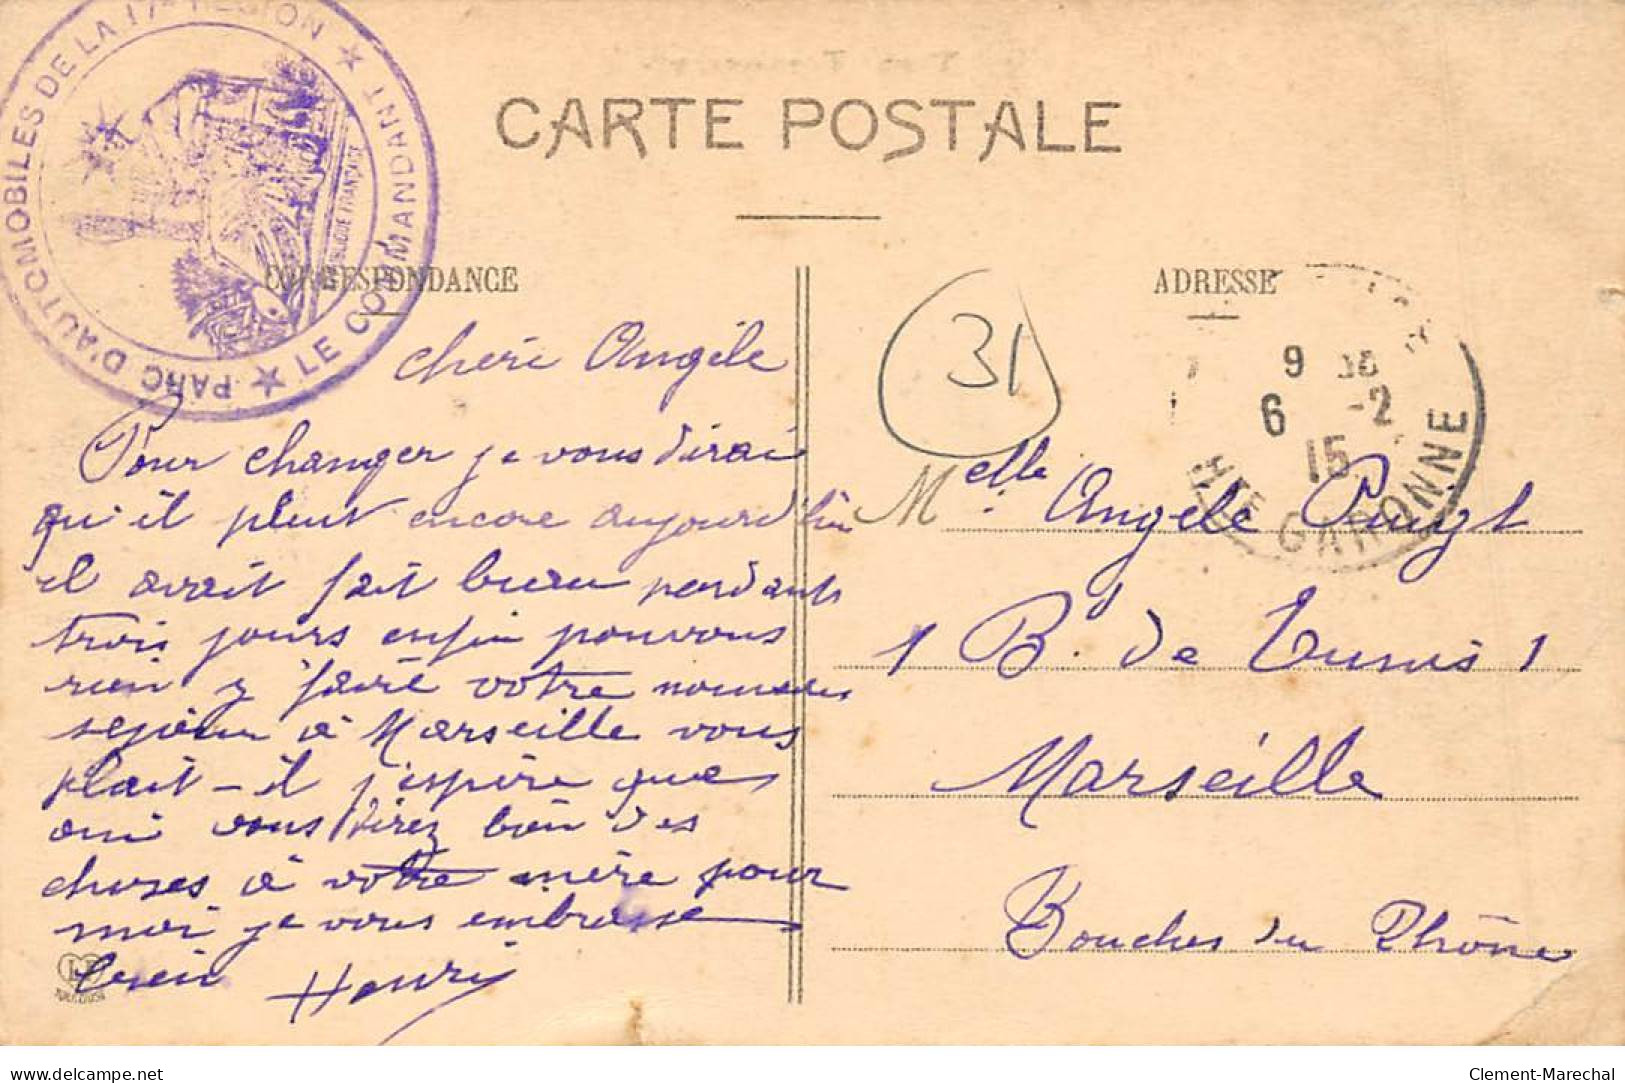 PARC D'AUTOMOBILES DE LA 17e REGION
LE COMMANDANT
CARTE POSTALE
CORRESPONDANCE
ADRESSE
31
9
6 -2
15
HTE GARONNE
cheri Angèle
Pour changer je vous dirai
qu'il pleut encore aujourd'hui
il avait fait beau pendants
trois jours enfin pouvous
rien y faire votre nouveau
sejour à Marseille vous
plait-il j'espère que
oui vous direz bien des
choses à votre mère pour
moi je vous embrasse
bien Henri
Melle Angèle
1 B. de Tunis 1
Marseille
Bouches du Rhône
Clement-Marechal
www.delcampe.net